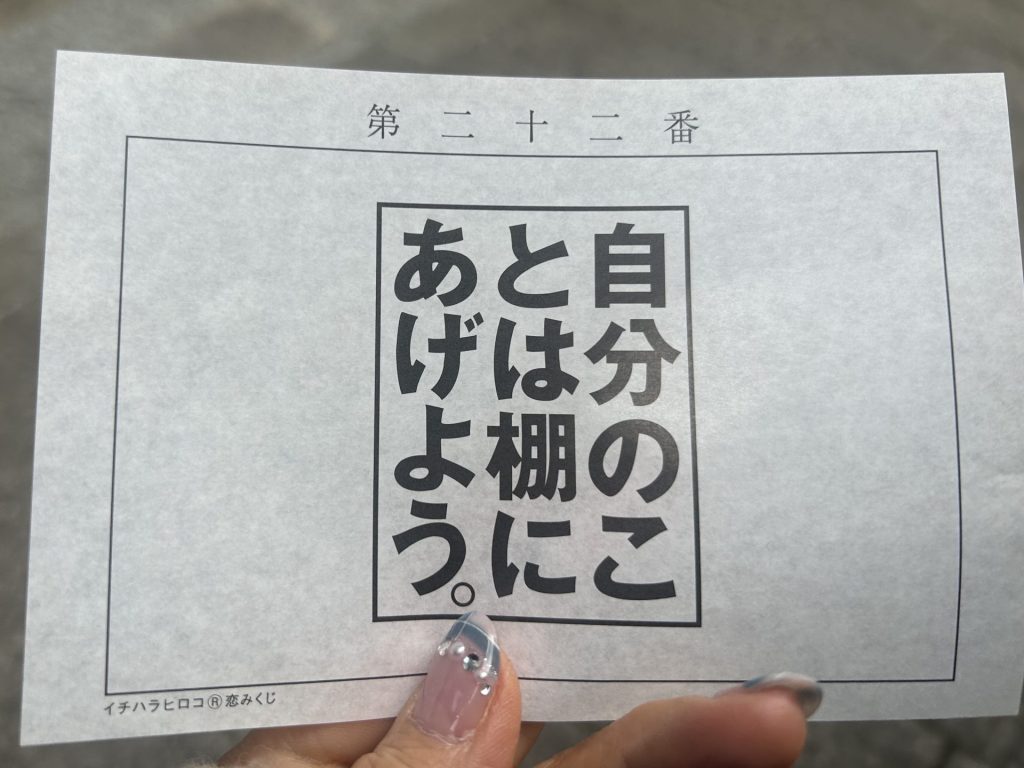 第二十二番
自分のこ
とは棚に
あげよう。
イチハラヒロコ®恋みくじ